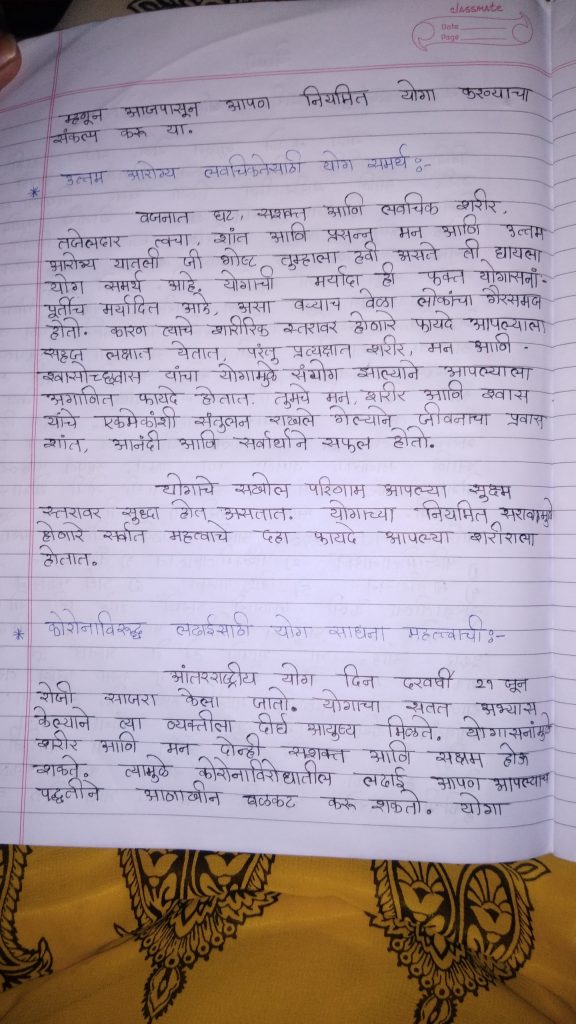 classmate
Date
Page
म्हणून आजपासून आपण नियमित योगा करण्याचा
संकल्प करू या.
* उत्तम आरोग्य लवचिकतेसाठी योग समर्थ :-
वजनात घट, सशक्त आणि लवचिक शरीर,
तजेलदार त्वचा, शांत आणि प्रसन्न मन आणि उत्तम
आरोग्य यातली जी गोष्ट तुम्हाला हवी असते ती द्यायला
योग समर्थ आहे. योगाची मर्यादा ही फक्त योगासनां-
पूर्तीच मर्यादित आहे, असा बऱ्याच वेळा लोकांचा गैरसमज
होतो. कारण त्याचे शारीरिक स्तरावर होणारे फायदे आपल्याला
सहज लक्षात येतात, परंतु प्रत्यक्षात शरीर, मन आणि
श्वासोच्छ्वास यांचा योगामुळे संयोग झाल्याने आपल्याला
अगणित फायदे होतात. तुमचे मन, शरीर आणि श्वास
यांचे एकमेकांशी संतुलन राखले गेल्याने जीवनाचा प्रवास
शांत, आनंदी आणि सर्वार्थाने सफल होतो.
योगाचे सखोल परिणाम आपल्या सुक्ष्म
स्तरावर सुध्दा होत असतात. योगाच्या नियमित सरावामुळे
होणारे सर्वात महत्वाचे दहा फायदे आपल्या शरीराला
होतात.
* कोरोनाविरुद्ध लढाईसाठी योग साधना महत्त्वाची :-
आंतरराष्ट्रीय योग दिन दरवर्षी २१ जून
रोजी साजरा केला जातो. योगाचा सतत अभ्यास
केल्याने त्या व्यक्तीला दीर्घ आयुष्य मिळते. योगासनांमुळे
शरीर आणि मन दोन्ही सशक्त आणि सक्षम होऊ
शकते. त्यामुळे कोरोनाविरोधातील लढाई आपण आपल्याच
पद्धतीने आणखीन बळकट करू शकतो. योगा